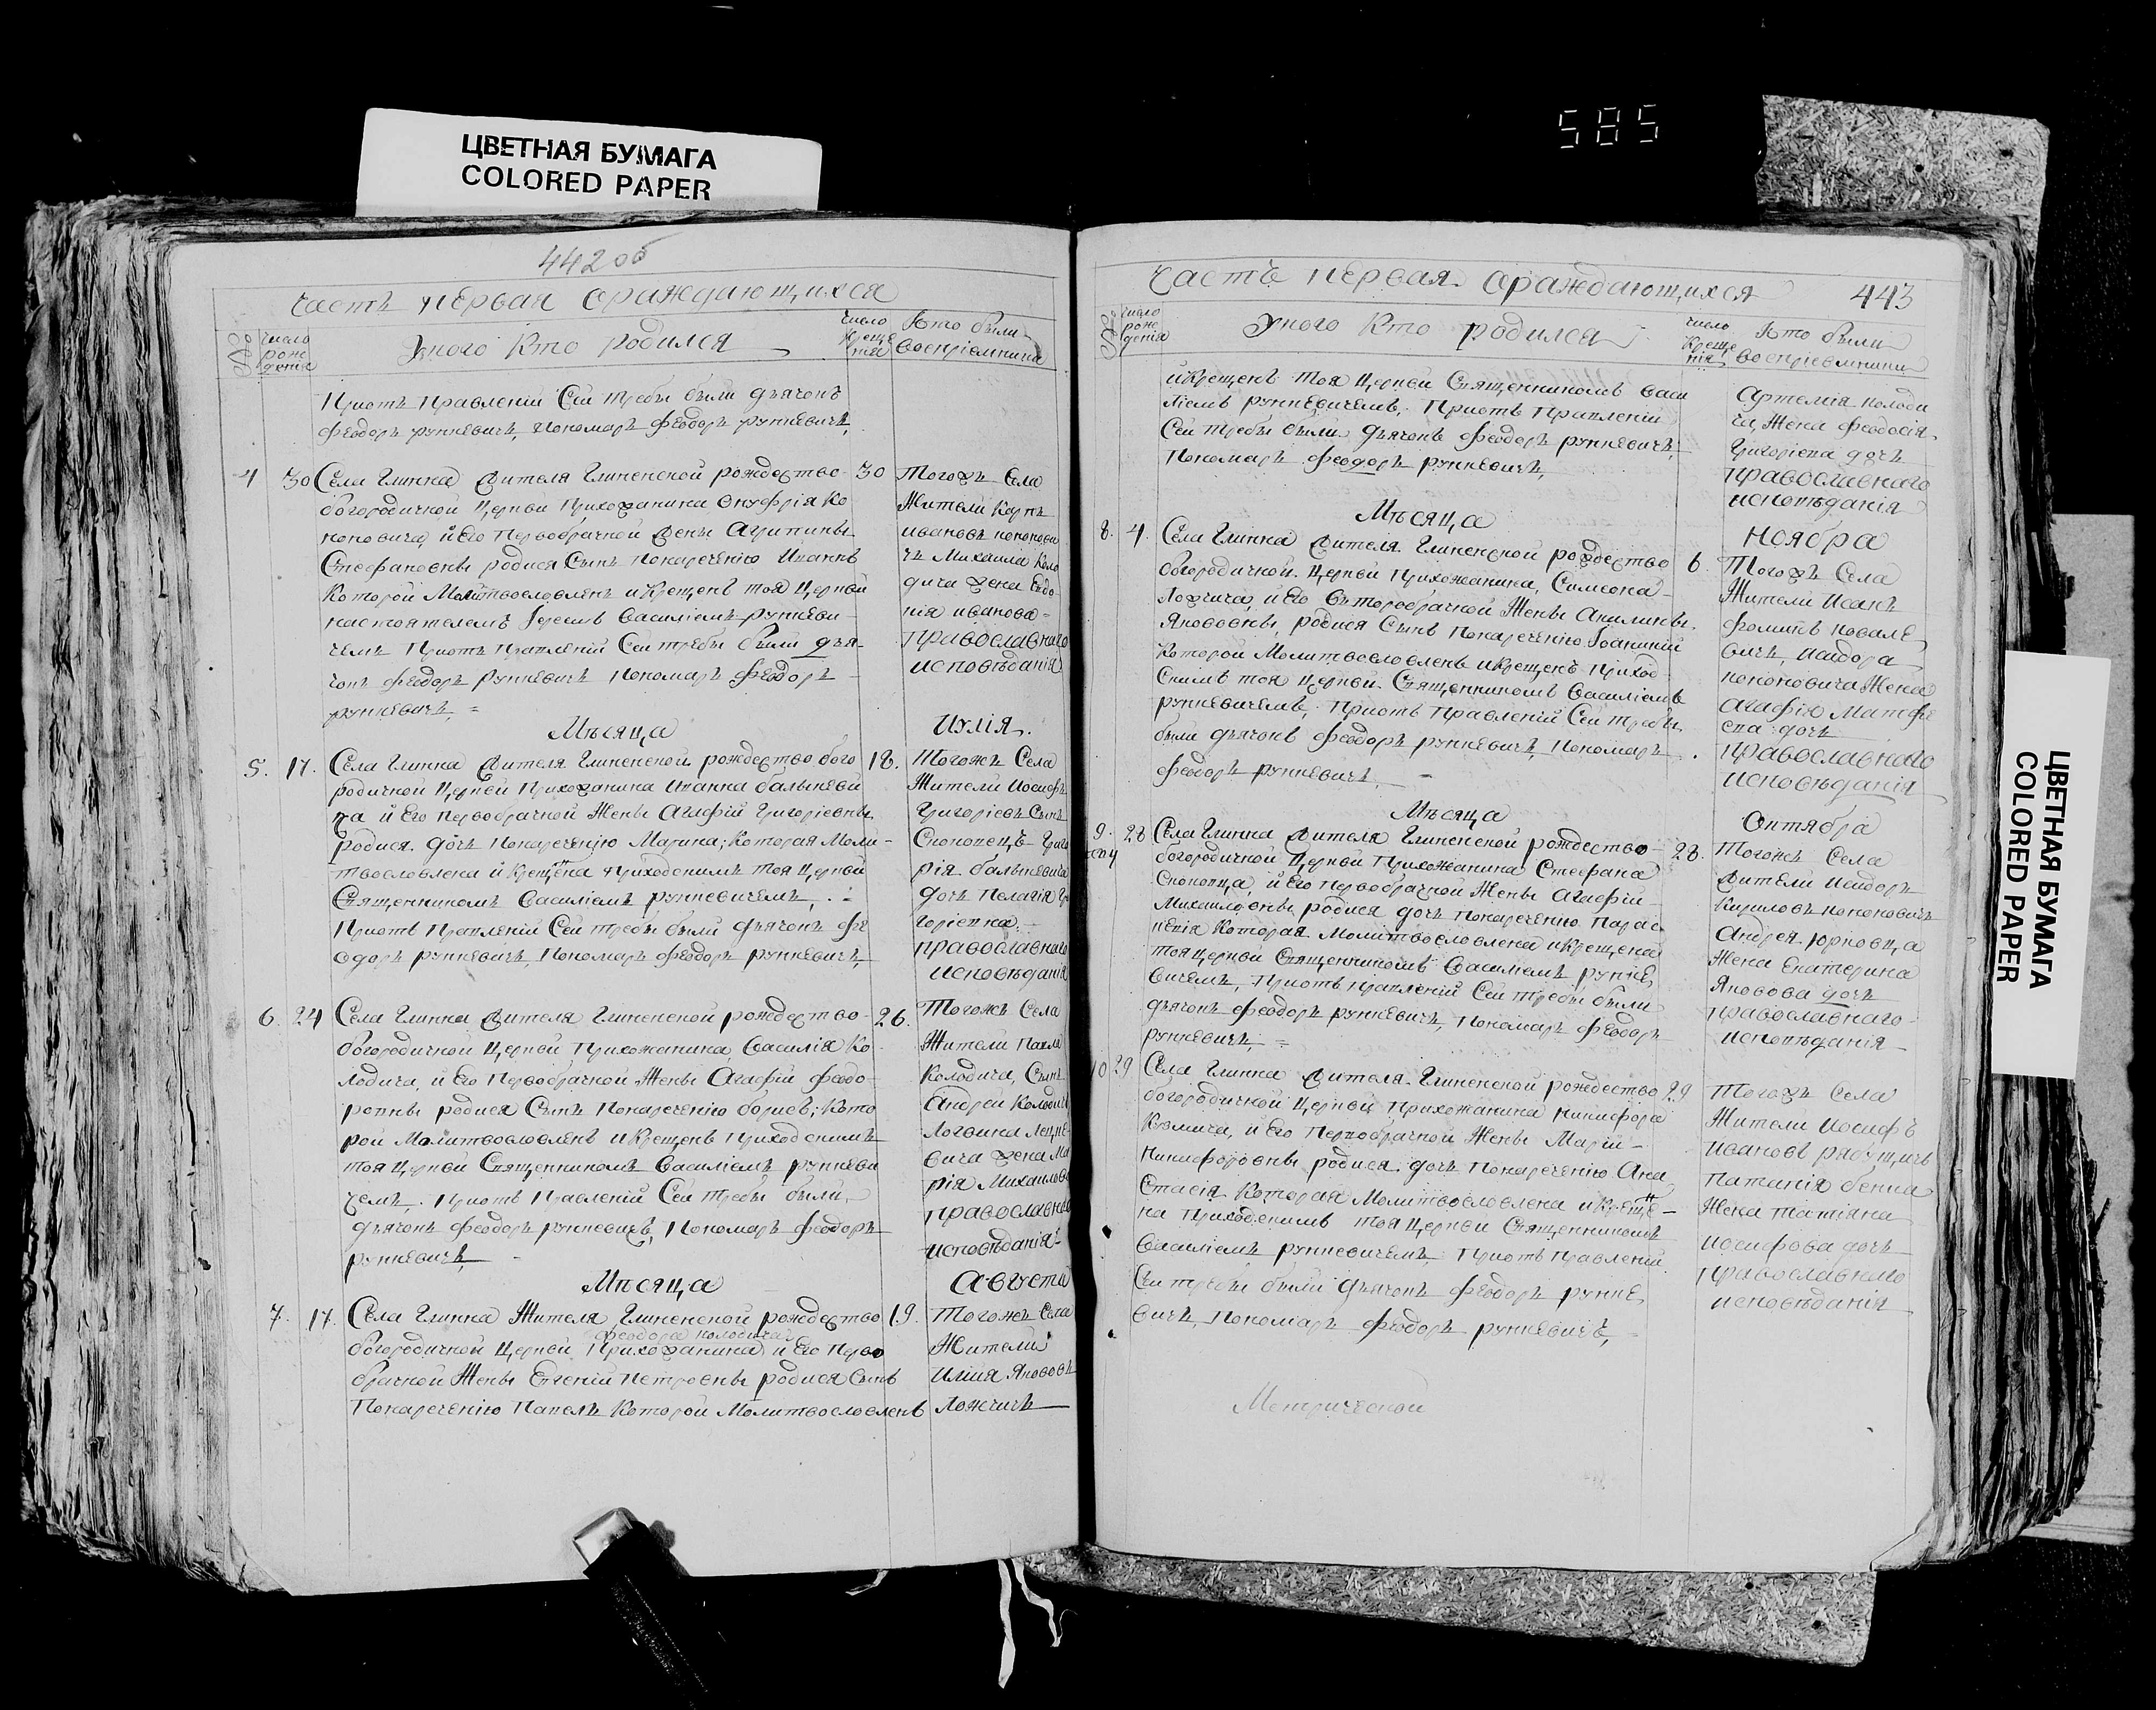 ЦВЕТНАЯ БУМАГА
COLORED PAPER
585
442об
часть первая ораждающихся
№
число рождения
Укого Кто родился
число Крещения
Кто были восприемники
Приотъ Правленіи Сей требы были дьячокъ
Феодоръ рункевичъ, Пономаръ Феодоръ рункевичъ,
4 30 Села Глинка Жителя Глиненской рождество- 30
богородичной Церкви Прихожанина Онуфрія Ко
ноновича, и Его Первобрачной Жены Агрипины
Стефановны родися Сынъ Понареченію Иоаннъ
Которой Молитвословленъ и Крещенъ тоя Церкви
настоятелемъ Іереемъ Василіемъ рункеви-
чемъ Приотъ Правленіи Сей требы были дья-
чокъ Феодоръ Рункевичъ Пономаръ Феодоръ
рункевичъ, =
Тогожъ Села
Жители Карпъ
ивановъ кононови
чъ Михаила Коло
дича жена Евдо-
кія иванова-
Православнаго
исповѣданія
Мѣсяца Иулія.
5. 17. Села Глинка Жителя Глиненской рождество бого 18.
родичной Церкви Прихожанина Иоанна балькеви
ча и Его первобрачной Жены Агафіи Григоріевны
родися дочь Понареченію Марина; Которая Моли-
твословлена и Крещена приходскимъ Тоя Церкви
Священникомъ Василіемъ рункевичемъ,
Приотъ Правленіи Сей требы были дьячокъ Фе
одоръ рункевичъ, Пономаръ Феодоръ рункевичъ,
Тогожъ Села
Жители Иосифъ
Григоріевъ Сынъ
Скопецъ Григо
рія балькевича
дочь Пелагія Гри
горіевна.
православнаго
исповѣданія
6. 24 Села Глинка Жителя Глиненской рождество- 26.
богородичной Церкви Прихожанина Василія Ко-
лодича, и Его Первобрачной Жены Агафіи Феодо-
ровны родися Сынъ Понареченію борисъ; Кото
рой Молитвословленъ и Крещенъ Приходскимъ
тоя Церкви Священникомъ Василіемъ рункеви
чемъ. Приотъ Правленіи Сей требы были,
дьячокъ Феодоръ рункевичъ, Пономаръ Феодоръ
рункевичъ,
Тогожъ Села
Жители Павла
Колодича, Сынъ
Андрей Колодичъ
Логвина
вича жена Ма
рія Михаилова
православнаго
исповѣданія
Мѣсяца Августа
7. 17. Села Глинка Жителя Глиненской рождество 19.
Феодора колодича
богородичной Церкви Прихожанина и Его Перво
брачной Жены Евгеніи Петровны родися Сынъ
Понареченію Павелъ Которой Молитвословленъ
Тогожъ Села
Жители
Илия Якововъ
Ложчичъ
Часть первая ораждающихся 443
№
число рождения
Укого Кто родился
число Крещения
Кто были восприемники
и Крещенъ тоя Церкви Священникомъ Васи
ліемъ рункевичемъ. Приотъ Правленіи
Сей требы были дьячокъ Феодоръ рункевичъ,
Пономаръ Феодоръ рункевичъ,
Артемія колоди
ча, Жена Феодосія
Григоріева дочь
православнаго
исповѣданія
Мѣсяца Ноября
8. 4. Села Глинка Жителя Глиненской рождество 6.
богородичной Церкви Прихожанина, Симеона
Ложчича, и Его Второбрачной Жены Акилины
Яковovны, родися Сынъ Понареченію Іоанникій
Которой Молитвословленъ и Крещенъ Приход
скимъ тоя Церкви Священникомъ Василіемъ
рункевичемъ, Приотъ Правленіи Сей требы
были дьячокъ Феодоръ рункевичъ, Пономаръ
Феодоръ рункевичъ,
Тогожъ Села
Жители Исакъ
Фоминъ ковале
вичъ, исидора
кононовича Жена
Агафія Матфе
ева дочь
Православнаго
исповѣданія
Мѣсяца Октября
9. 28 Села Глинка Жителя Глиненской рождество- 28.
богородичной Церкви Прихожанина Стефана
Скопца, и Его Первобрачной Жены Агафіи
Михаиловны родися дочь Понареченію Парас
кевія Которая Молитвословлена и Крещена
тоя Церкви Священникомъ Василіемъ рунке
вичемъ, Приотъ Правленіи Сей требы были
дьячокъ Феодоръ рункевичъ, Пономаръ Феодоръ
рункевичъ, =
Тогожъ Села
Жители Исидоръ
Кириловъ кононовичъ
Андрея
Жена Екатерина
Яковова дочь
Православнаго
исповѣданія
10 29 Села Глинка Жителя Глиненской рождество 29
богородичной Церкви Прихожанина Никифора
Кузмича, и Его Первобрачной Жены Маріи
Никифоровны родися дочь Понареченію Ана
стасія Которая Молитвословлена и Креще-
на Приходскимъ тоя Церкви Священникомъ
Василіемъ рункевичемъ, Приотъ Правленіи
Сей требы были дьячокъ Феодоръ рунке
вичъ, Пономаръ Феодоръ рункевичъ,
Тогожъ Села
Жители Иосифъ
Ивановъ
Жена Татіана
иосифова дочь
православнаго
исповѣданія
Метрической
ЦВЕТНАЯ БУМАГА
COLORED PAPER